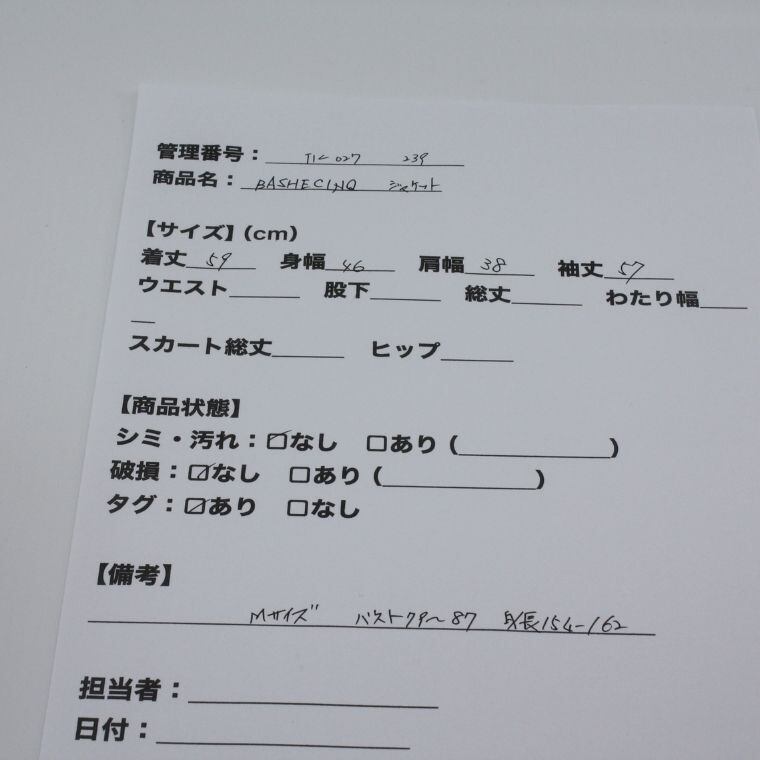 管理番号：TIC 027 239
商品名：BASHECINQ ジャケット
【サイズ】(cm)
着丈 59 身幅 46 肩幅 38 袖丈 57
ウエスト 股下 総丈 わたり幅
スカート総丈 ヒップ
【商品状態】
シミ・汚れ：☑なし □あり ( )
破損：☑なし □あり ( )
タグ：☑あり □なし
【備考】
Mサイズ バスト79〜87 身長154-162
担当者：
日付：